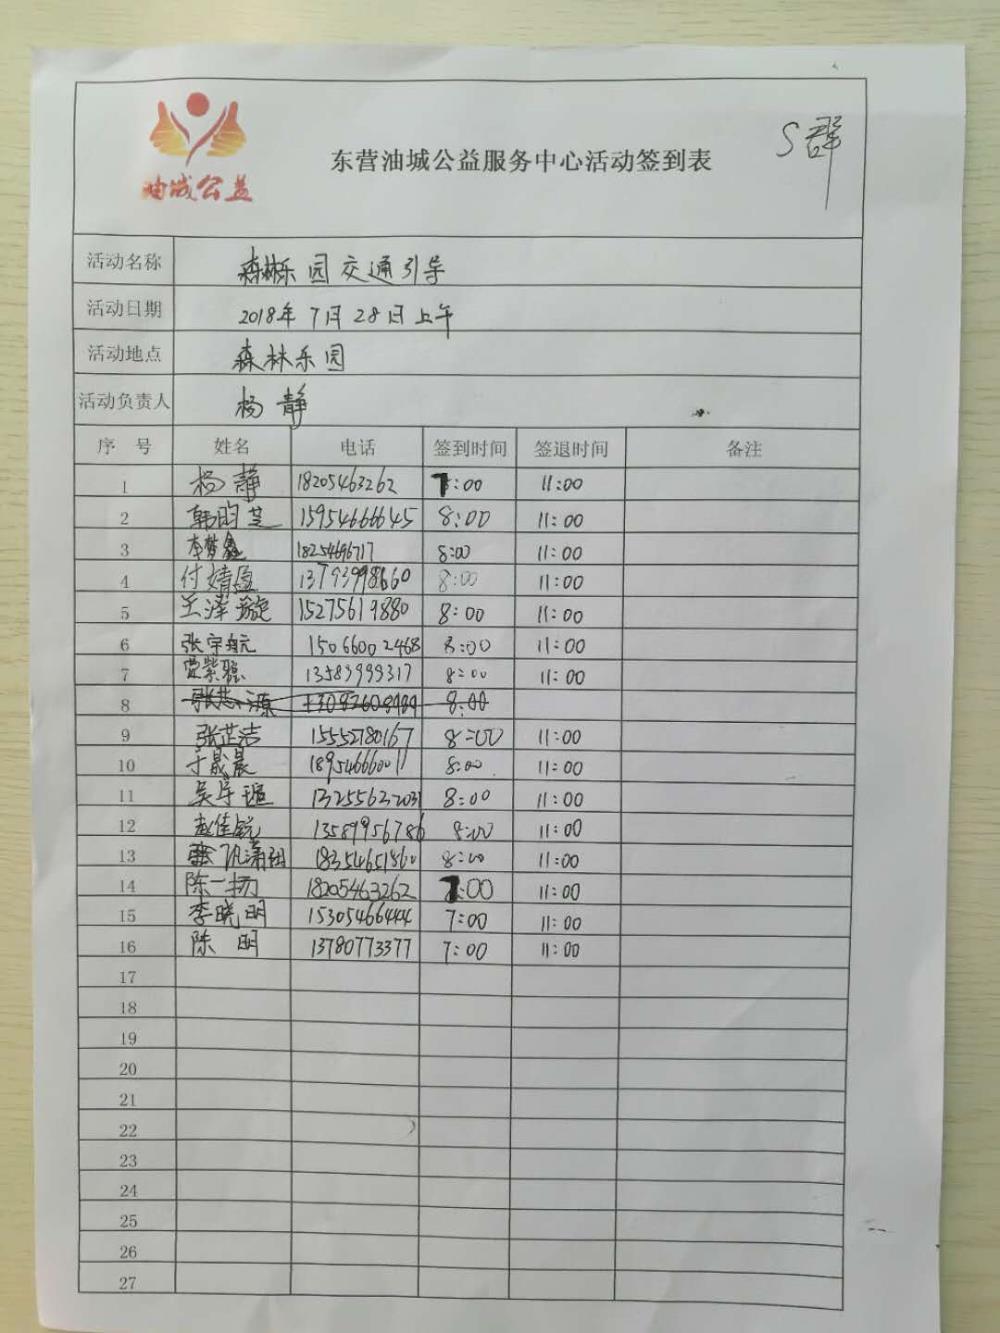 油城公益
东营油城公益服务中心活动签到表
S群
活动名称 森林乐园交通引导
活动日期 2018年7月28日上午
活动地点 森林乐园
活动负责人 杨静
序号 姓名 电话 签到时间 签退时间 备注
1 杨静 18205463262 7:00 11:00
2 韩昀芝 15954666645 8:00 11:00
3 李梦鑫 18254696717 8:00 11:00
4 付婧盈 13793998660 8:00 11:00
5 王泽璇 15275619880 8:00 11:00
6 张宇航 15066002468 8:00 11:00
7 贾紫骢 13589999317 8:00 11:00
8 8:00
9 张芷洁 15555780167 8:00 11:00
10 于晟晨 18954666001 8:00 11:00
11 吴宇瑄 8:00 11:00
12 赵佳锐 13589956786 8:00 11:00
13 18354651560 8:00 11:00
14 陈一扬 18205463262 7:00 11:00
15 李晓明 15305466444 7:00 11:00
16 陈明 13780773377 7:00 11:00
17
18
19
20
21
22
23
24
25
26
27